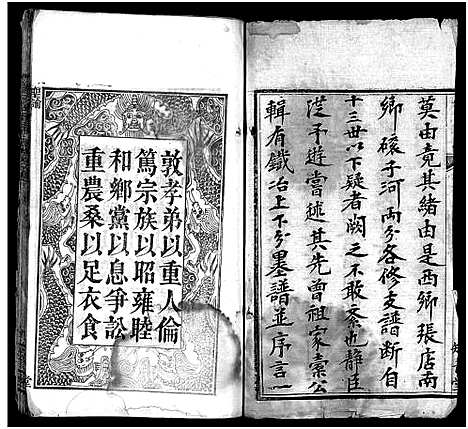 莫由竟其緒由是西鄉張店南
鄉磙子河兩分各修支譜斷自
十三世以下疑者闕之不敢紊也靜臣
從予遊嘗述其先曾祖家索公
輯有鐵冶上下分墨譜並序言一
敦孝弟以重人倫
篤宗族以昭雍睦
和鄉黨以息爭訟
重農桑以足衣食
聖諭
堂